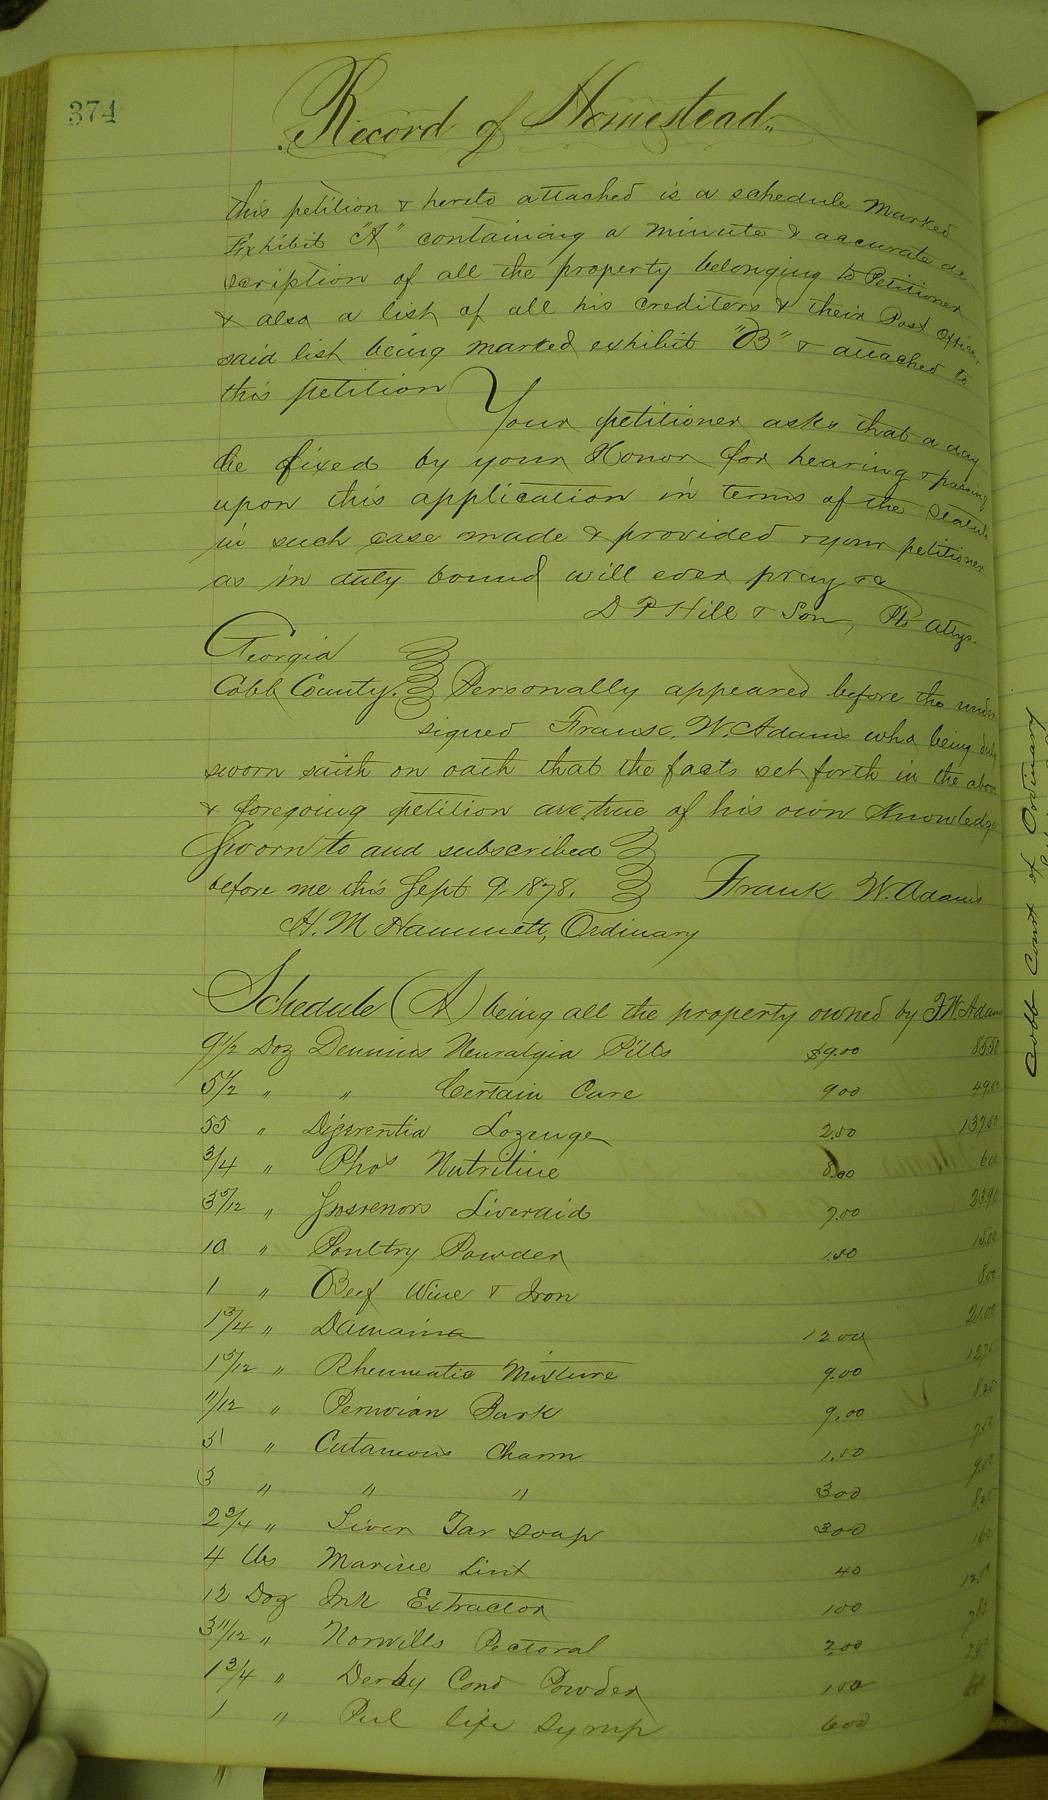 374
Record of Homestead.
this petition & hereto attached is a schedule marked
Exhibit "A" containing a minute & accurate de
scription of all the property belonging to Petitioner
& also a list of all his creditors & their Post Office,
said list being marked exhibit "B" & attached to
this petition
Your petitioner asks that a day
be fixed by your Honor for hearing & passing
upon this application in terms of the Statute
in such case made & provided & your petitioner
as in duty bound will ever pray &c
D P Hill & Son, Pt's Attys.
Georgia
Cobb County. Personally appeared before the under
signed Frank. W. Adams who being duly
sworn saith on oath that the facts set forth in the above
& foregoing petition are true of his own knowledge
Sworn to and subscribed
before me this Sept 9. 1878. Frank W. Adams
H. M Hammett, Ordinary
Schedule (A) being all the property owned by F. W. Adams
9 1/2 Doz Neuralgia Pills $9.00 85.50
5 1/2 " " Certain Cure 900 49.50
55 " Lozenge 2.50 137.50
3/4 " Phos Nutritine 8.00 600
3 5/12 " Liveraid 7.00 23.90
10 " Poultry Powder 1.50 15.00
1 " Beef Wine & Iron 800
1 3/4 " Damaina 12 00 21.00
1 5/12 " Rheumatic Mixture 9.00 12.75
11/12 " Peruvian Bark 9.00 8.25
5 " Cutaneous Charm 1.50 7.50
3 " " " 300 9.00
2 3/4 " Tar Soap 300 8.25
4 lbs Marine Lint 40 160
12 Doz Ink Extractor 100 12.00
3 11/12 " Norwills Pectoral 2.00 7.83
1 3/4 " Derby Cond Powder 100
1 " life Syrup 600
Cobb Court of Ordinary